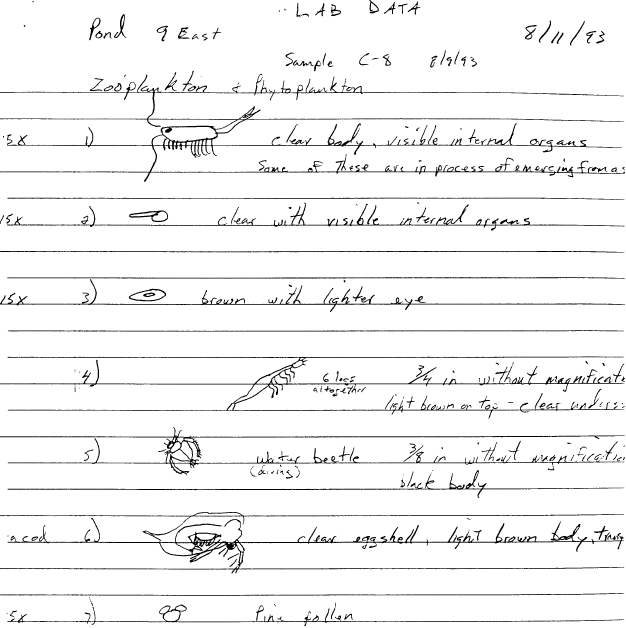 LAB DATA
Pond 9 East 8/11/93
Sample C-8 8/9/93
Zooplankton & Phytoplankton
5X 1) clear body, visible internal organs
Some of these are in process of emerging from as
15X 2) clear with visible internal organs
15X 3) brown with lighter eye
4) 6 legs altogether 3/4 in without magnificat
light brown on top - clear unders
5) water beetle 3/8 in without magnificatio
(diving) black body
6) clear eggshell, light brown body,
5X 7) Pine pollen